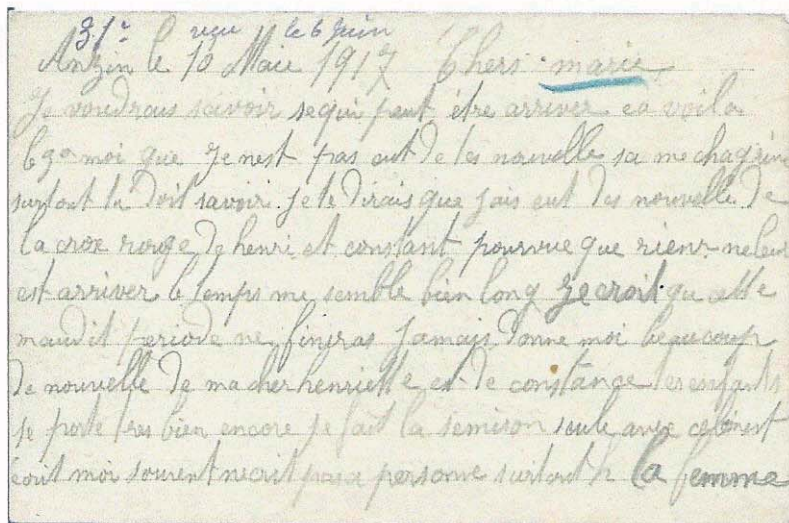 31e reçu le 6 Juin
Anzin le 10 Maie 1917 Chers marie
Je voudrais savoir sequi peut être arriver ca voila
le 3e moi que je nest pas eut de tes nouvelle sa me chagrine
surtout tu doit savoir. je te dirais que jais eut des nouvelle de
la croix rouge de henri et constant pourvue que rien ne leur
est arriver le temps me semble bien long je croit que cette
maudit periode ne fineras jamais donne moi beaucoup
de nouvelle de ma cher henriette et de constance les enfants
se porte tres bien encore je fait la semison seule avec
ecrit moi souvent necrit pas a personne surtout la femme